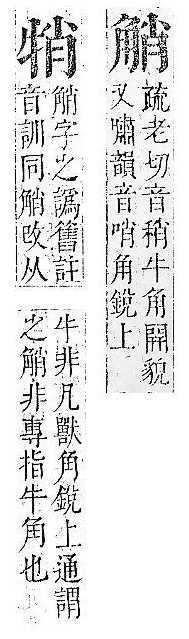 䚛
疏老切音稍牛角開貌
又嘯韻音哨角鋭上
䚛字之譌舊註
音訓同䚛改从
牛非凡獸角鋭上通謂
之䚛非專指牛角也